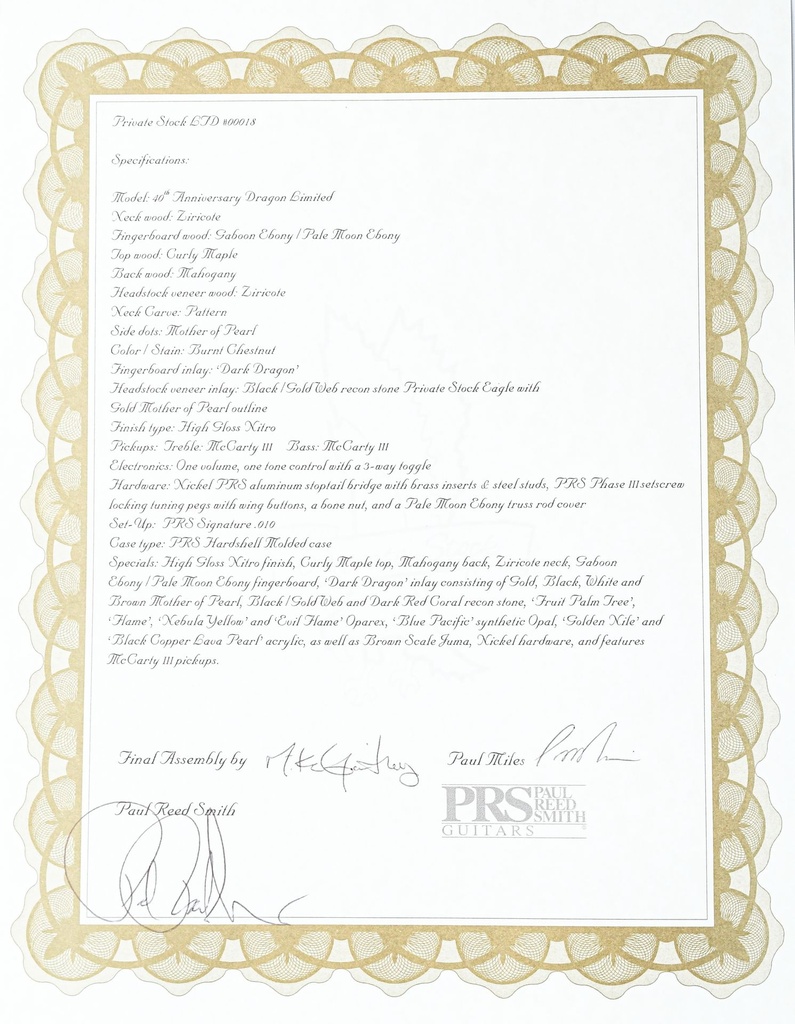 Private Stock LTD #00018
Specifications:
Model: 40th Anniversary Dragon Limited
Neck wood: Ziricote
Fingerboard wood: Gaboon Ebony / Pale Moon Ebony
Top wood: Curly Maple
Back wood: Mahogany
Headstock veneer wood: Ziricote
Neck Carve: Pattern
Side dots: Mother of Pearl
Color / Stain: Burnt Chestnut
Fingerboard inlay: 'Dark Dragon'
Headstock veneer inlay: Black / Gold Web recon stone Private Stock Eagle with
Gold Mother of Pearl outline
Finish type: High Gloss Nitro
Pickups: Treble: McCarty III Bass: McCarty III
Electronics: One volume, one tone control with a 3-way toggle
Hardware: Nickel PRS aluminum stoptail bridge with brass inserts & steel studs, PRS Phase III setscrew
locking tuning pegs with wing buttons, a bone nut, and a Pale Moon Ebony truss rod cover
Set-Up: PRS Signature .010
Case type: PRS Hardshell Molded case
Specials: High Gloss Nitro finish, Curly Maple top, Mahogany back, Ziricote neck, Gaboon
Ebony / Pale Moon Ebony fingerboard, 'Dark Dragon' inlay consisting of Gold, Black, White and
Brown Mother of Pearl, Black / Gold Web and Dark Red Coral recon stone, 'Fruit Palm Tree',
'Flame', 'Nebula Yellow' and 'Evil Flame' Oparex, 'Blue Pacific' synthetic Opal, 'Golden Nile' and
'Black Copper Lava Pearl' acrylic, as well as Brown Scale Juma, Nickel hardware, and features
McCarty III pickups.
Final Assembly by
Paul Miles
Paul Reed Smith
PRS PAUL REED SMITH
GUITARS